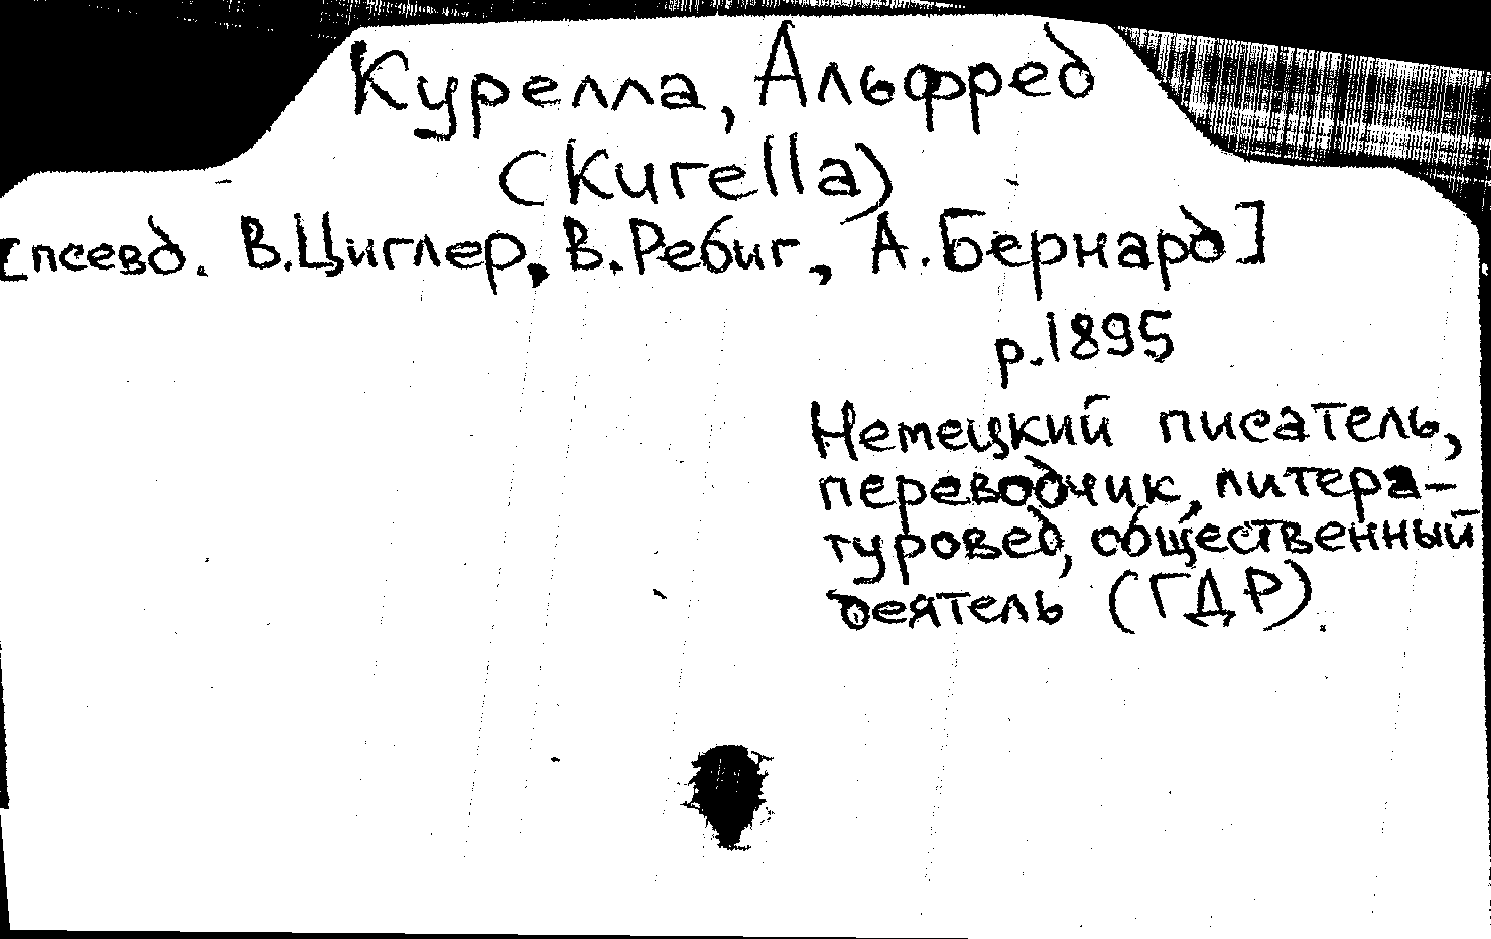 Курелла, Альфред
(Kurella)
[псевд. В.Циглер, В.Ребиг, А.Бернард]
р.1895
Немецкий писатель,
переводчик, литера-
туровед, общественный
деятель (ГДР).